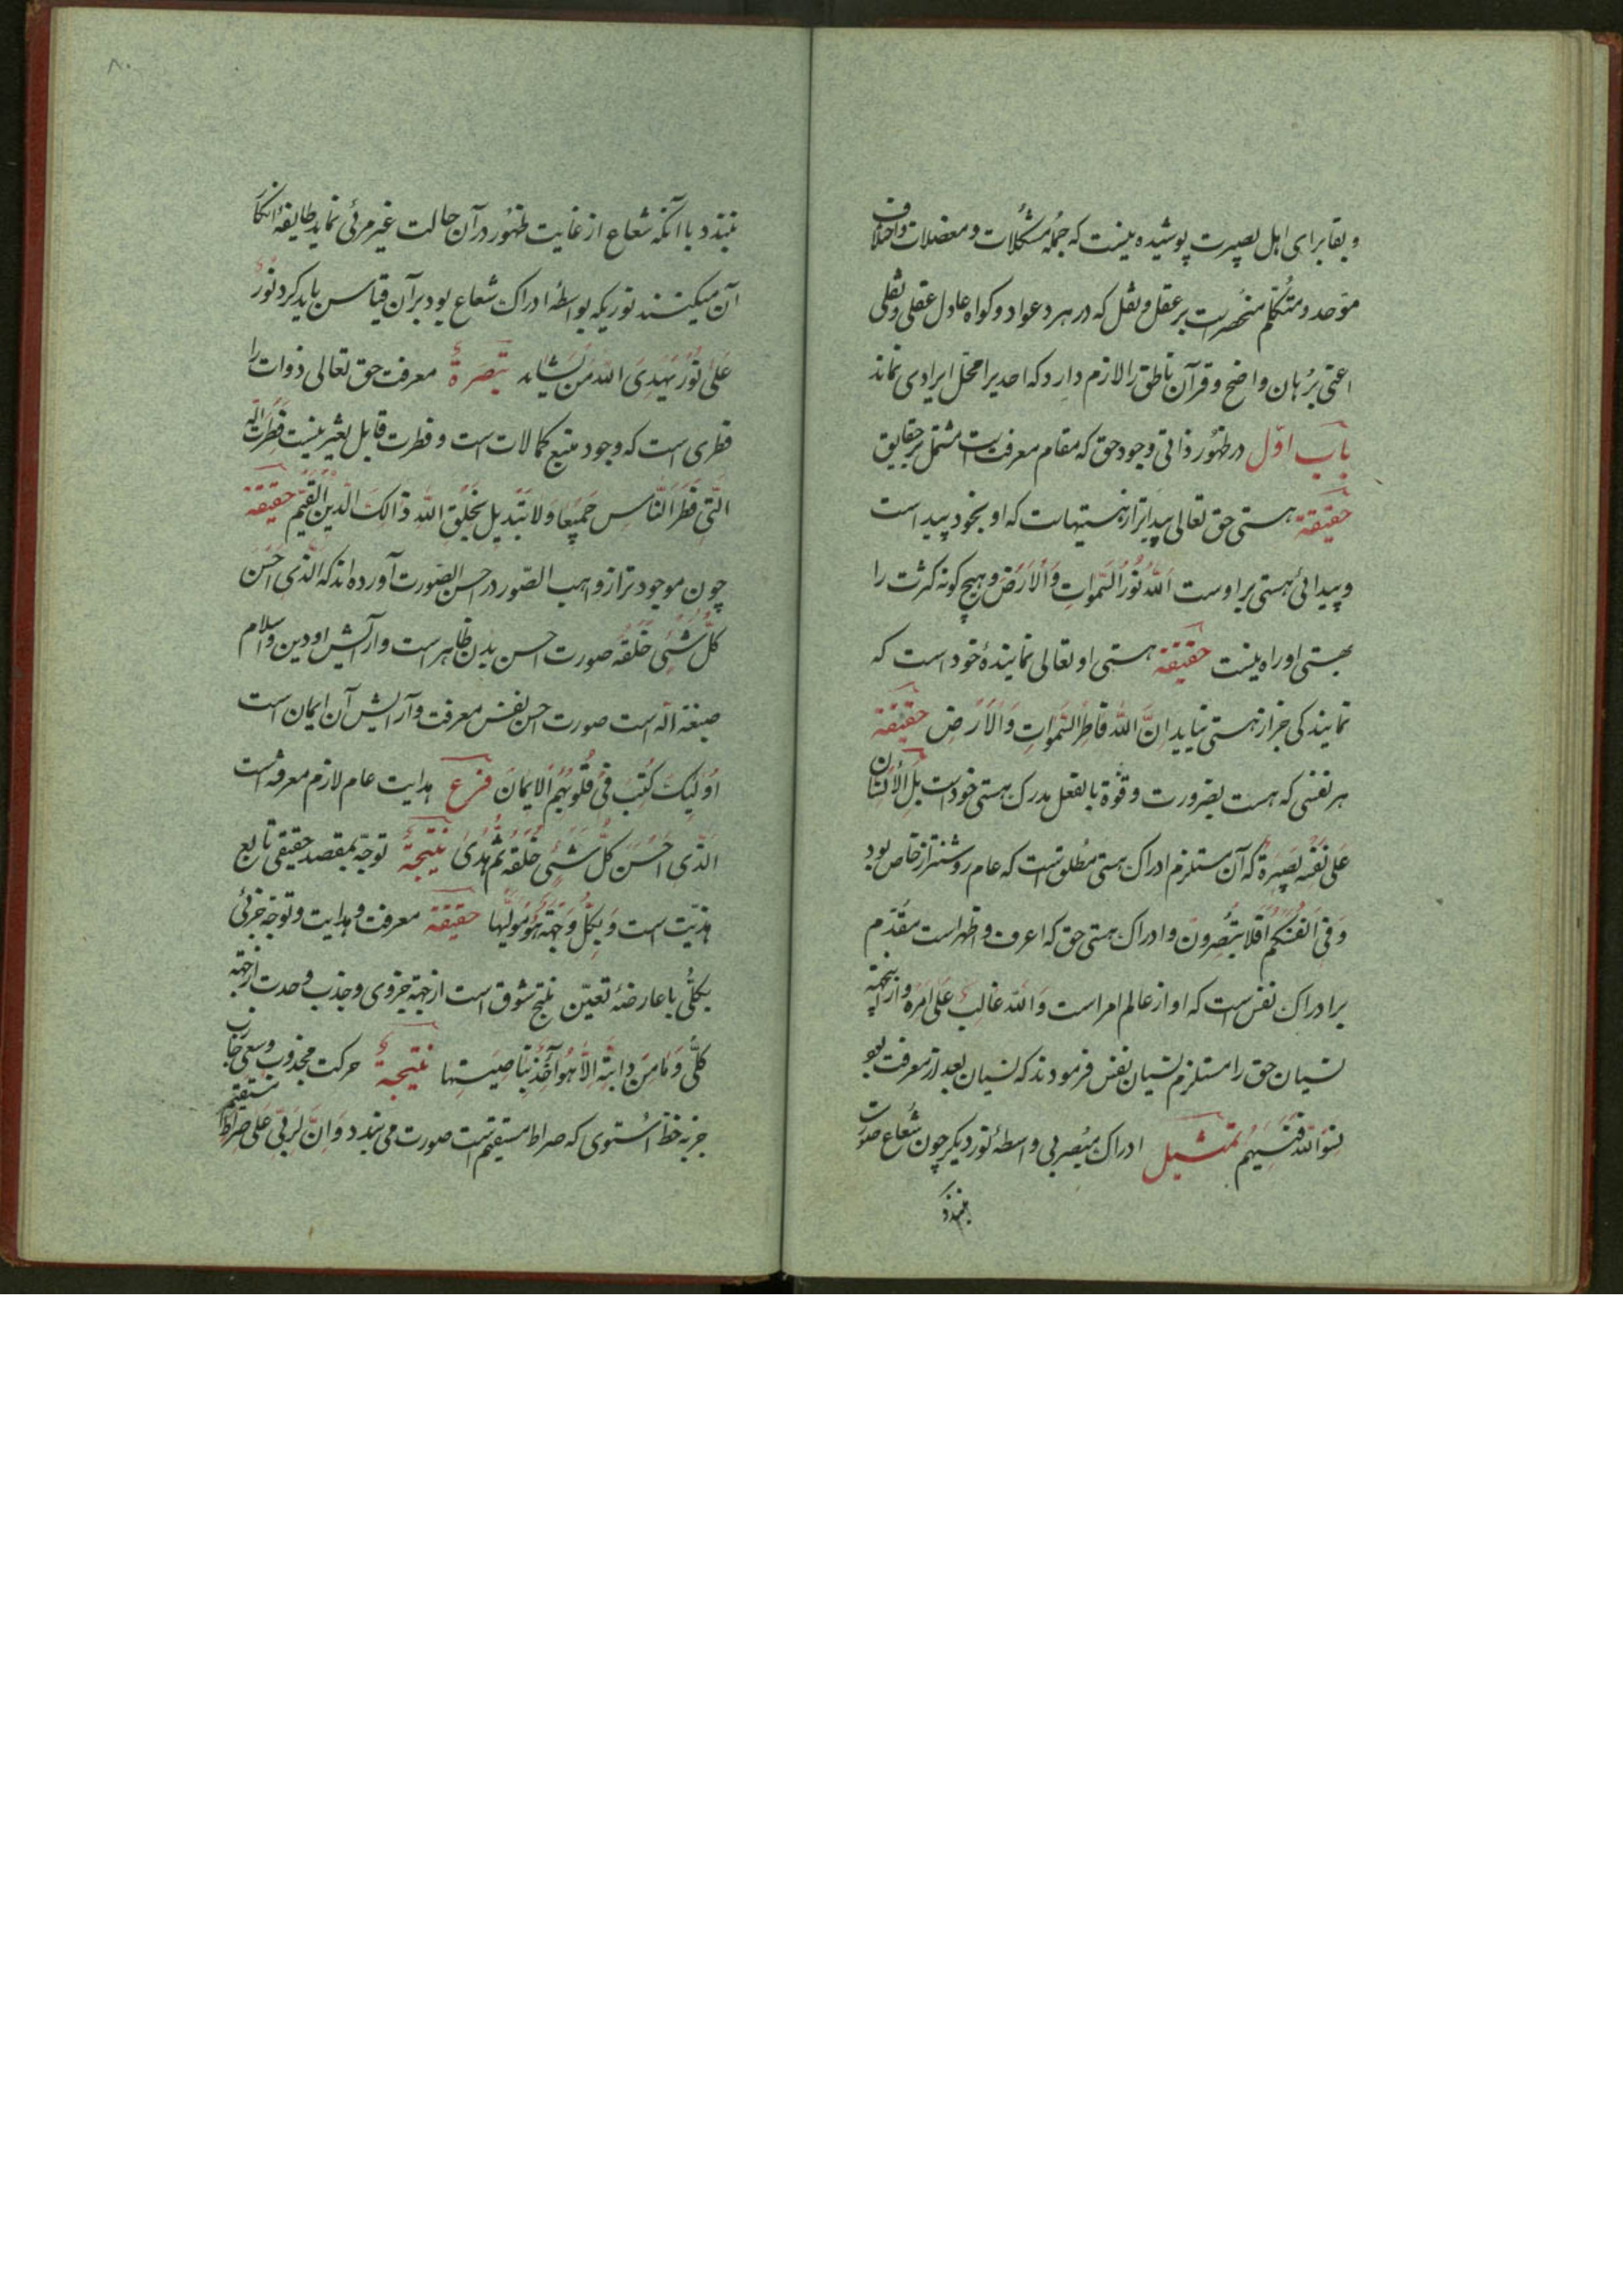 و بقا برای اهل بصیرت پوشیده نیست که جمله مشکلات و معضلات و اختلاف
موحد و متکلم منحصر است بر عقل و نقل که در هر دعوا دو کواه عادل عقلی و نقلی
اعنی برهان واضح و قرآن ناطق را لازم دارد که احدیرا محل ایرادی نماند
باب اوّل در ظهور ذاتی وجود حق که مقام معرفت است مشتمل بر حقایق
حقیقة هستی حق تعالی پیداتر از هستیهاست که او بخود پیداست
و پیدائی هستی بر اوست اَللّهُ نُورُ السَّمواتِ وَالاَرضِ و هیچ کونه کثرت را
بهستی او راه نیست حقیقة هستی او تعالی نمایندهٔ خود است که
نمایندکی جز از هستی نیاید اِنَّ اللّهَ فاطِرُ السَّمواتِ وَالاَرضِ حقیقة
هر نفسی که هست بضرورت و قوّة بالفعل مدرک هستی خود است بَلِ الاِنسان
عَلی نَفسِه بَصیرَة که آن مستلزم ادراک هستی مطلق است که عام روشنتر از خاص بود
وَ فی اَنفُسِکُم اَفَلا تُبصِرون و ادراک هستی حق که اعرف و اظهر است مقدّم
بر ادراک نفس است که او از عالم امر است وَاللّه غالِب عَلی اَمرِه و از اینجهة
نسیان حق را مستلزم نسیان نفس فرمودند که نسیان بعد از معرفت بود
نسوا اللّه فنسیهم تمثیل ادراک مبصر بی واسطهٔ نور دیکر چون شعاع صورت
نبندد
۸۰
نبندد با آنکه شعاع از غایت ظهور در آن حالت غیر مرئی نماید طایفهٔ انکار
آن میکنند نوریکه بواسطهٔ ادراک شعاع بود بر آن قیاس باید کرد نُورٌ
عَلی نُور یَهدِی اللّه مَن یَشاء تبصرةٌ معرفت حق تعالی ذوات را
فطری است که وجود منبع کمالات است و فطرت قابل تغیر نیست فِطرَت اللّه
الَّتی فَطَرَ النّاس جَمیعا وَ لا تَبدیل لِخَلقِ اللّه ذالِکَ الدّینُ القَیِّم حقیقة
چون موجود تر از واهب الصّور در احسن الصّورت آورده اند که الَّذی اَحسَن
کُلَّ شَیئی خَلَقَه صورت احسن بدن ظاهر است و آرایش او دین و اسلام
صبغة اللّه است صورت احسن نفس معرفت و آرایش آن ایمان است
اُولئِکَ کُتِبَ فی قُلُوبِهِم الایمان فرع هدایت عام لازم معرفة است
الّذی اَحسَن کُلَّ شَیئی خَلَقَه ثُمَّ هَدی نتیجةٌ توجّه بمقصد حقیقی تابع
هذیّت است وَ لِکُلٍّ وِجهَةٌ هُوَ مُوَلّیها حقیقة معرفت و هدایت و توجّه جزئی
بکلّی با عارضهٔ تعیّن نتیج شوق است از جهة جزوی و جذب وحدت از جهة
کلّی وَ ما مِن دابّةٍ اِلاّ هُوَ آخِذٌ بِناصِیَتِها نتیجةٌ حرکت مجذوب و سعی جاذب
جز به خط اُستوی که صراط مستقیم است صورت می نبندد وَ اِنَّ رَبّی عَلی صِراطٍ مستقیم